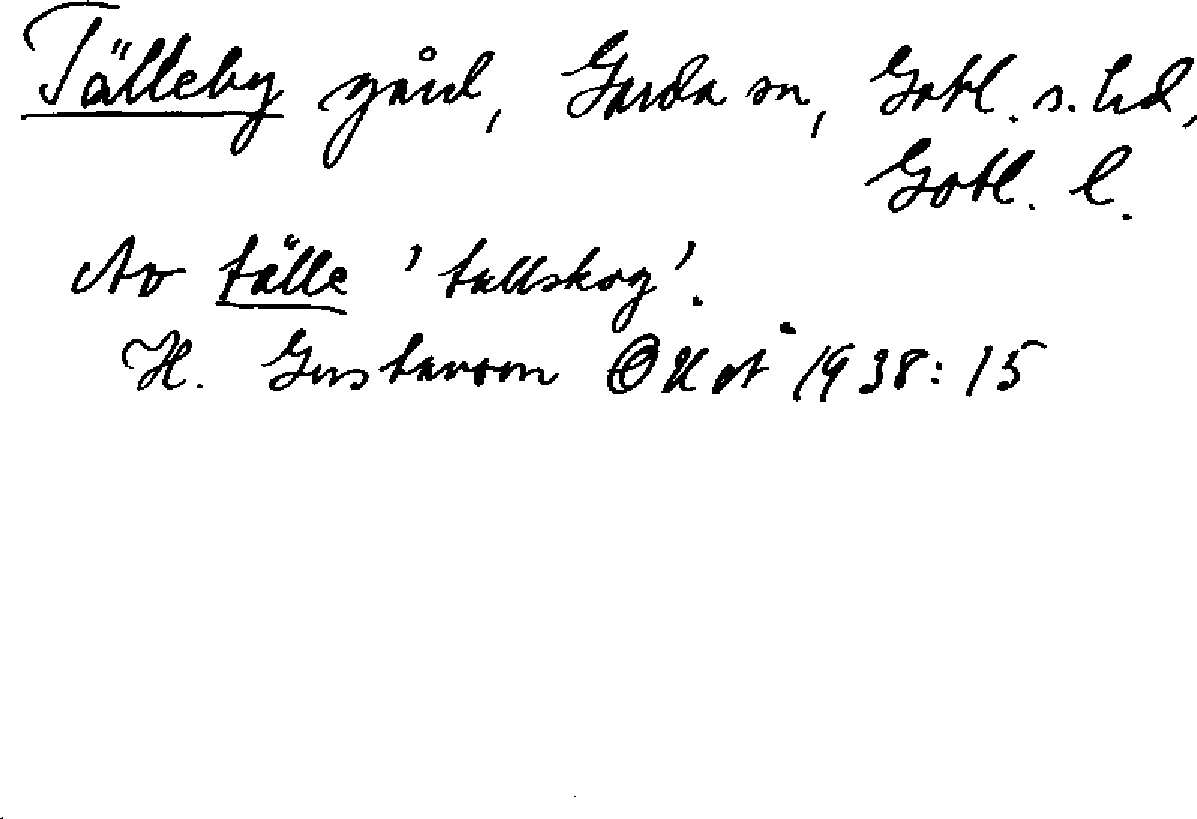 Tälleby gård, Garda sn, Gotl. s. hd,
Gotl. l.
Av tälle 'tallskog'.
H. Gustavson 1938:15